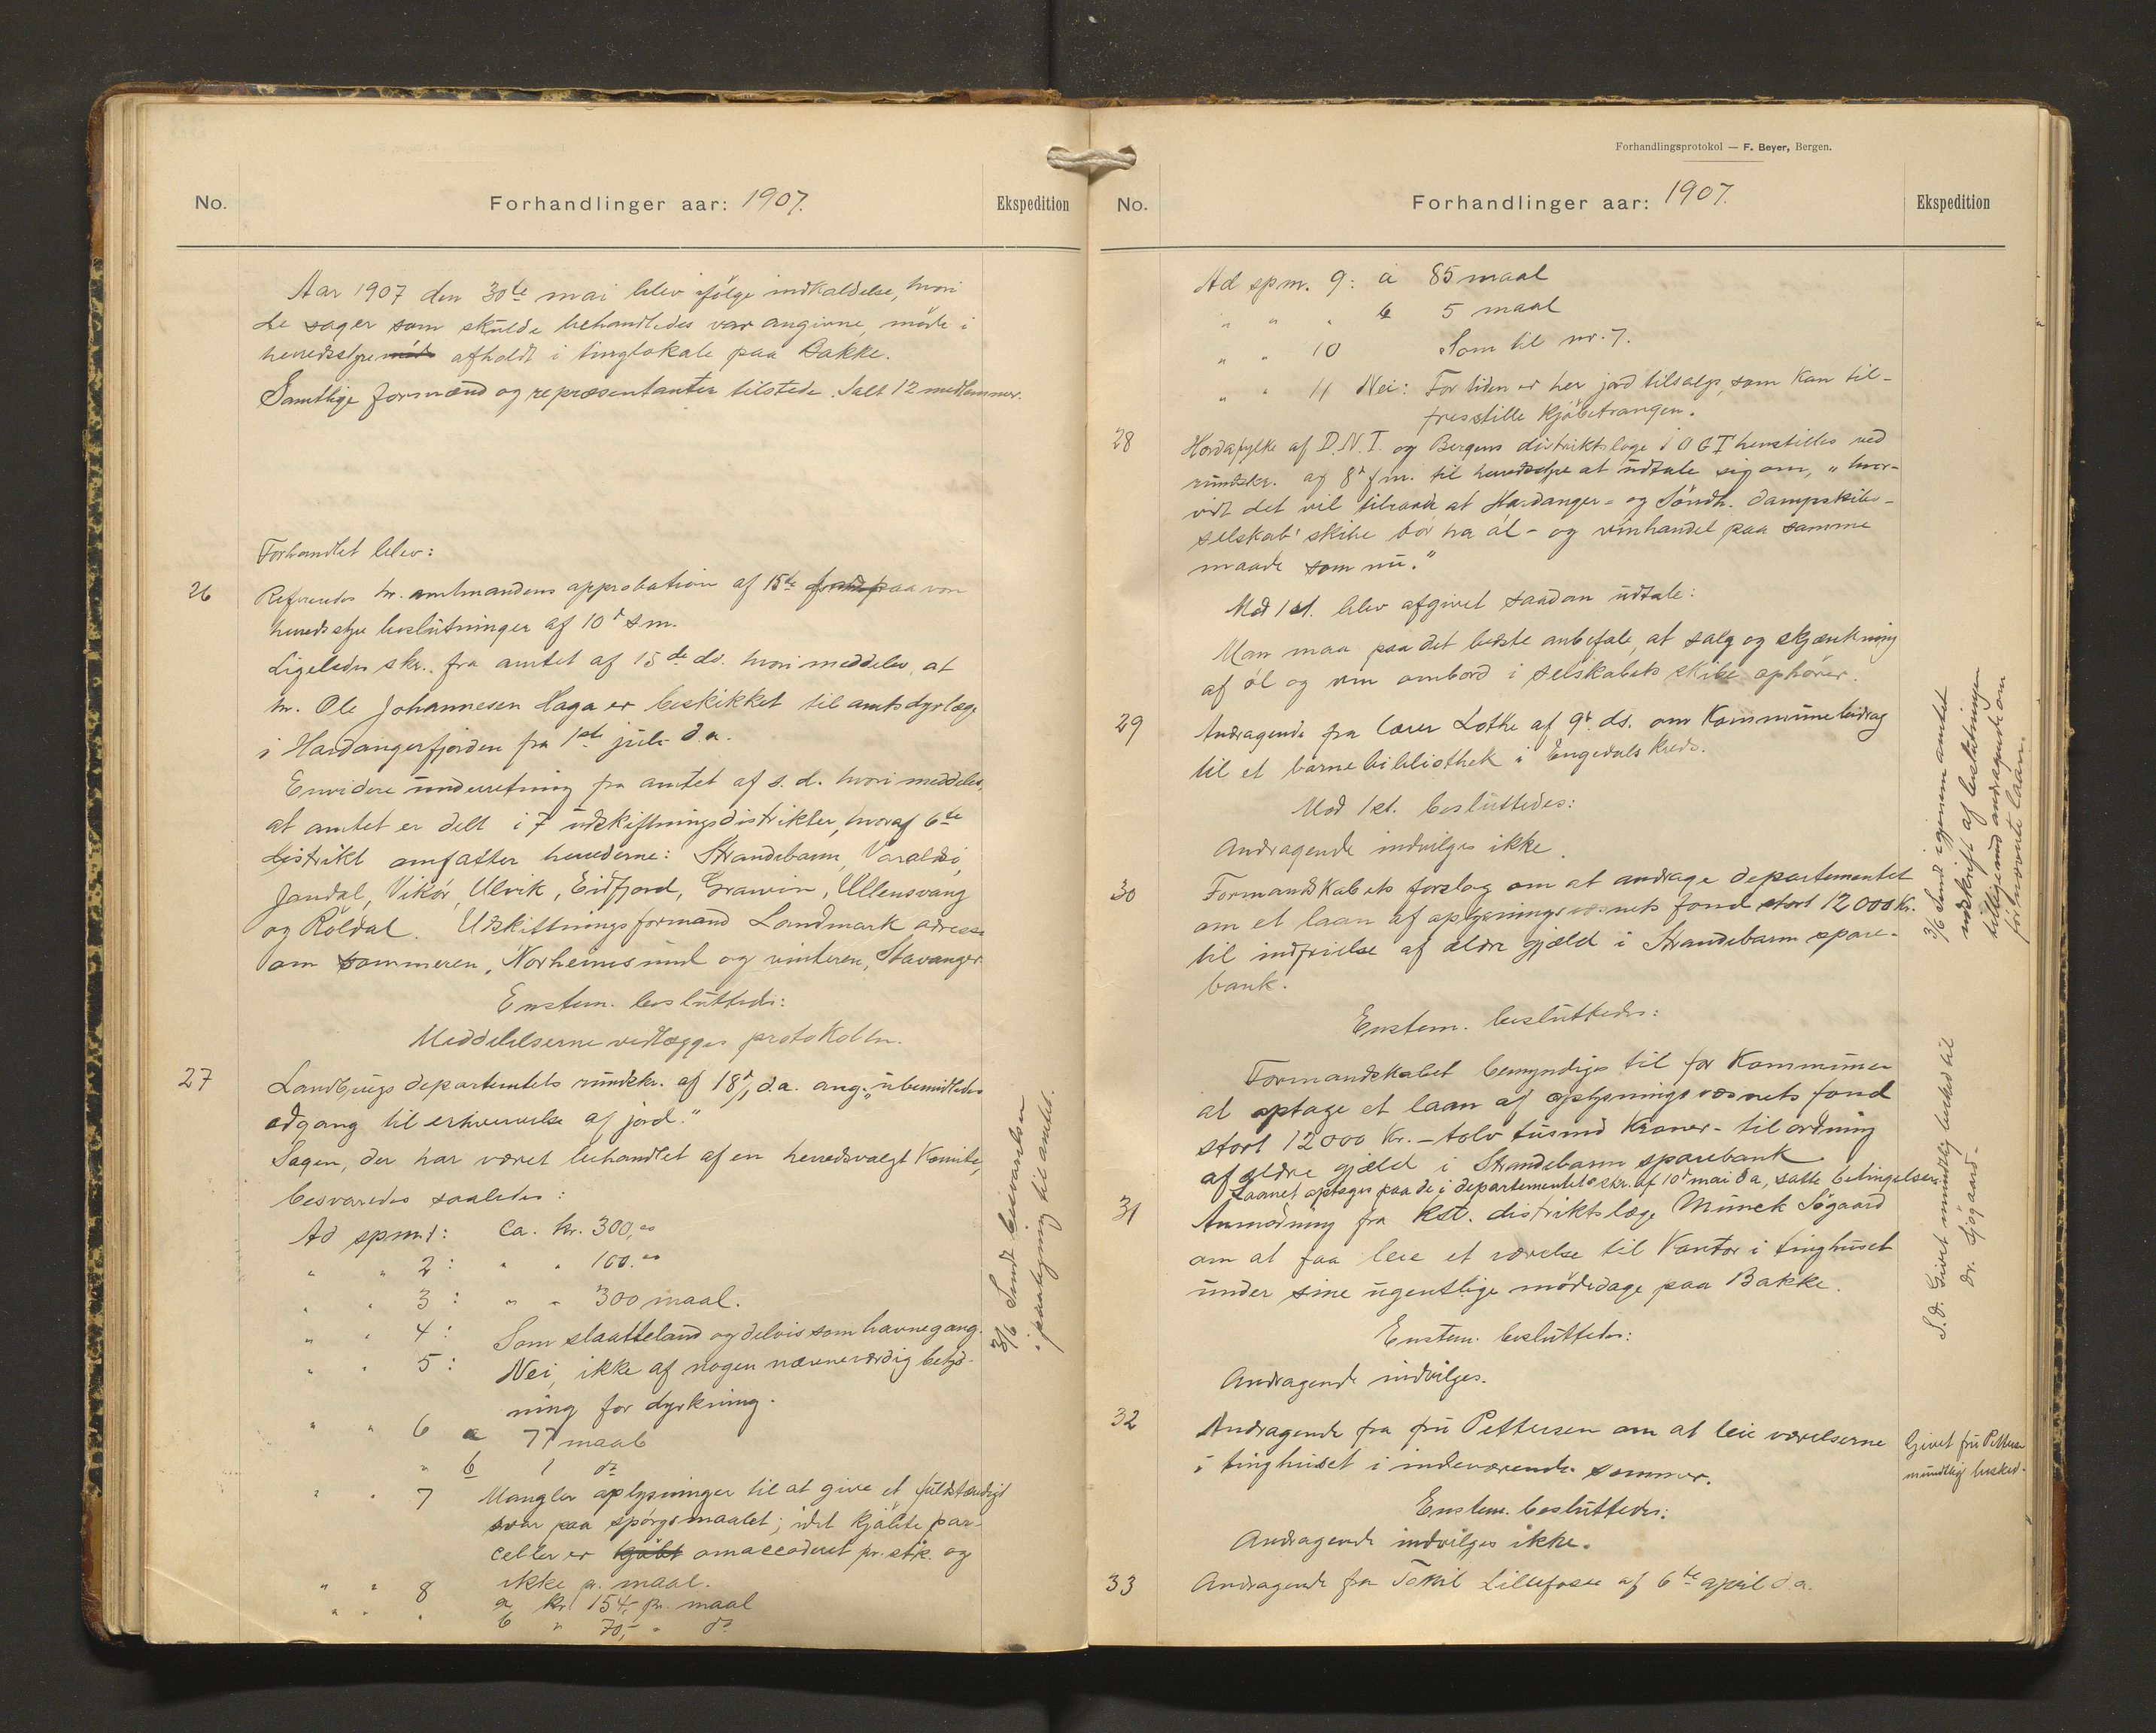 No.
Forhandlinger aar: 1907.
Ekspedition
Aar 1907 den 30te mai blev ifölge indkaldelse, hvori
de sager som skulde behandledes var angivne, möde i
herredsstyre afholdt i tinglokale paa Bakke.
Samtlige formænd og repræsentanter tilstede. Ialt 12 medlemmer.
Forhandlet blev:
26
Refereredes hr. amtmandens approbation af 15de paa
herredsstyre beslutninger af 10d s.m.
Ligeledes skr. fra amtet af 15de ds. hvori meddeles, at
hr. Ole Johannesen Haga er beskikket til amtsdyrlæge
i Hardangerfjorden fra 1ste juli d.a.
Envidere underretning fra amtet af s.d. hvori meddeles,
at amtet er delt i 7 udskiftningsdistrikter, hvoraf 6te
distrikt omfatter herrederne: Strandebarm, Varaldsö,
Jondal, Vikör, Ulvik, Eidfjord, Granvin, Ullensvang
og Röldal. Udskiftningsformand Landmark adresse
om sommeren, Norheimsund og vinteren, Stavanger.
Enstem. besluttedes:
Meddelelserne vedlægges protokollen.
27
Landbrugsdepartemtets rundskr. af 18/1 d.a. ang. "ubemidledes
adgang til erhvervelse af jord."
Sagen, der har været behandlet af en herredsvalgt komite,
besvaredes saaledes:
Ad spm. 1: ca. kr. 300,00
" " 2: " " 100.00
" " 3: " " 300 maal.
" " 4: Som slaatteland og delvis som havnegang.
" " 5: Nei, ikke af nogen nævneværdig betyd-
ning for dyrkning.
" " 6 a 77 maal
" b 1 do
" " 7 Mangler oplysninger til at give et fuldstændigt
svar paa spörgsmaalet; idet kjöbte par-
celler er kjöbt omaccoderet pr. stk. og
ikke pr. maal.
" " 8 a kr. 154,- pr. maal
" " " b " 70,- " do
3/6 Sendt besvarelsen
i paategning til amtet.
Forhandlingsprotokol — F. Beyer, Bergen.
No.
Forhandlinger aar: 1907.
Ekspedition
Ad spm. 9: a 85 maal
" " " b 5 maal
" " 10 Som til nr. 7.
" " 11 Nei: For tiden er her jord tilsalgs, som kan til-
fresstille kjöbetrangen.
28
Hordafylke af D.N.T. og Bergens distriktsloge i O G T henstilles ved
rundskr. af 8d f.m. til herredsstyre at udtale sig om, "hvor-
vidt det vil tilraade at Hardanger- og Söndh. dampskibs-
selskab' skibe bör ha öl- og vinhandel paa samme
maade som nu."
Mod 1 st. blev afgivet saadan udtale:
Man maa paa det bedste anbefale, at salg og skjænkning
af öl og vin ombord i selskabets skibe ophörer.
29
Andragende fra lærer Lothe af 9d. ds. om kommunebidrag
til et barnebibliothek i Engedals kreds.
Mod 1 st. besluttedes:
Andragende indvilges ikke.
30
Formandskabets forslag om at andrage departementet
om et laan af oplysningsvæsnets fond stort 12000 kr.
til indfrielse af ældre gjæld i Strandebarm spare-
bank.
Enstem. besluttedes:
Formandskabet bemyndiges til for kommunen
at optage et laan af oplysningsvæsnets fond
stort 12000 kr. - tolv tusind kroner - til ordning
af ældre gjæld i Strandebarm sparebank.
Laanet optages paa de i departementets skr. af 10d mai d.a. satte betingelser.
3/6 Sendt igjennem amtet
udskrift af beslutningen
tilligemed andragende om
förnævnte laan.
31
Anmodning fra kst. distriktslæge Munck Sögaard
om at faa leie et værelse til kontor i tinghuset
under sine ugentlige mödedage paa Bakke.
Enstem. besluttedes:
Andragende indvilges.
S.d. Givet mundtlig besked til
dr. Sögaard.
32
Andragende fra fru Pettersen om at leie værelserne
i tinghuset i indeværende sommer.
Enstem. besluttedes:
Andragende indvilges ikke.
Givet fru Pettersen
mundtlig besked.
33
Andragende fra Lillefosse af 6te april d.a.